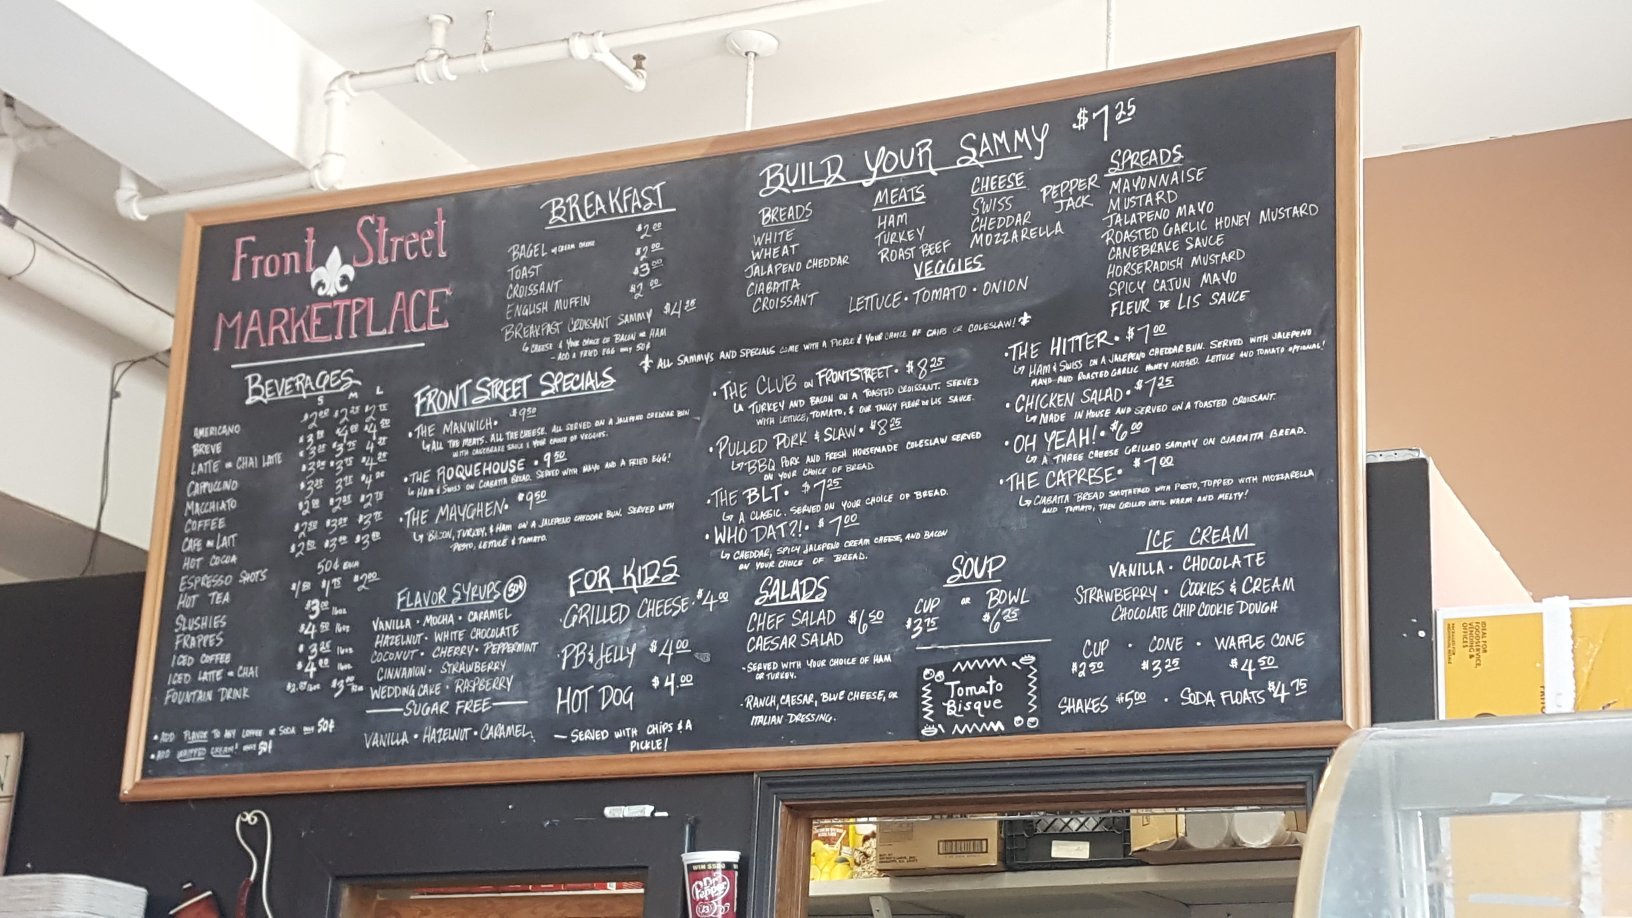 Front Street
MARKETPLACE
BEVERAGES
S M L
AMERICANO
BREVE
LATTE OR CHAI LATTE
CAPPUCCINO
MACCHIATO
COFFEE
CAFE AU LAIT
HOT COCOA
ESPRESSO SHOTS 50¢ EACH
HOT TEA
SLUSHIES $3.00 16oz
FRAPPES $4.50 16oz
ICED COFFEE $3.25 16oz
ICED LATTE OR CHAI $4.00 16oz
FOUNTAIN DRINK
• ADD FLAVOR TO ANY COFFEE OR SODA 50¢
• ADD WHIPPED CREAM! 50¢
BREAKFAST
BAGEL W/ CREAM CHEESE $2.00
TOAST $2.00
CROISSANT $3.00
ENGLISH MUFFIN $2.00
BREAKFAST CROISSANT SAMMY $4.25
CHEESE & YOUR CHOICE OF BACON OR HAM
- ADD A FRIED EGG ONLY 50¢
FRONT STREET SPECIALS
• THE MANWICH • $9.50
ALL THE MEATS. ALL THE CHEESE. ALL SERVED ON A JALAPENO CHEDDAR BUN
WITH CANEBRAKE SAUCE & YOUR CHOICE OF VEGGIES.
• THE ROQUEHOUSE • $9.50
HAM & SWISS ON CIABATTA BREAD. SERVED WITH MAYO AND A FRIED EGG!
• THE MAYGHEN • $9.50
BACON, TURKEY, & HAM ON A JALAPENO CHEDDAR BUN. SERVED WITH
PESTO, LETTUCE & TOMATO.
FLAVOR SYRUPS 50¢
VANILLA • MOCHA • CARAMEL
HAZELNUT • WHITE CHOCOLATE
COCONUT • CHERRY • PEPPERMINT
CINNAMON • STRAWBERRY
WEDDING CAKE • RASPBERRY
SUGAR FREE
VANILLA • HAZELNUT • CARAMEL
FOR KIDS
• GRILLED CHEESE • $4.00
• PB & JELLY $4.00
HOT DOG $4.00
— SERVED WITH CHIPS & A
PICKLE!
BUILD YOUR SAMMY $7.25
BREADS
WHITE
WHEAT
JALAPENO CHEDDAR
CIABATTA
CROISSANT
MEATS
HAM
TURKEY
ROAST BEEF
CHEESE
SWISS
CHEDDAR
MOZZARELLA
PEPPER
JACK
VEGGIES
LETTUCE • TOMATO • ONION
SPREADS
MAYONNAISE
MUSTARD
JALAPENO MAYO
ROASTED GARLIC HONEY MUSTARD
CANEBRAKE SAUCE
HORSERADISH MUSTARD
SPICY CAJUN MAYO
FLEUR DE LIS SAUCE
ALL SAMMYS AND SPECIALS COME WITH A PICKLE & YOUR CHOICE OF CHIPS OR COLESLAW!
• THE CLUB ON FRONTSTREET • $8.25
TURKEY AND BACON ON A TOASTED CROISSANT. SERVED
WITH LETTUCE, TOMATO, & OUR TANGY FLEUR DE LIS SAUCE.
• PULLED PORK & SLAW • $8.25
BBQ PORK AND FRESH HOMEMADE COLESLAW SERVED
ON YOUR CHOICE OF BREAD.
• THE BLT • $7.25
A CLASSIC. SERVED ON YOUR CHOICE OF BREAD.
• WHO DAT?! • $7.00
CHEDDAR, SPICY JALAPENO CREAM CHEESE, AND BACON
ON YOUR CHOICE OF BREAD.
• THE HITTER • $7.00
HAM & SWISS ON A JALAPENO CHEDDAR BUN. SERVED WITH JALAPENO
MAYO AND ROASTED GARLIC HONEY MUSTARD. LETTUCE AND TOMATO OPTIONAL!
• CHICKEN SALAD • $7.25
MADE IN HOUSE AND SERVED ON A TOASTED CROISSANT.
• OH YEAH! • $6.00
A THREE CHEESE GRILLED SAMMY ON CIABATTA BREAD.
• THE CAPRESE • $7.00
CIABATTA BREAD SMOTHERED WITH PESTO, TOPPED WITH MOZZARELLA
AND TOMATO, THEN GRILLED UNTIL WARM AND MELTY!
SALADS
CHEF SALAD $6.50
CAESAR SALAD
- SERVED WITH YOUR CHOICE OF HAM
OR TURKEY.
- RANCH, CAESAR, BLUE CHEESE, OR
ITALIAN DRESSING.
SOUP
CUP OR BOWL
$3.75 $6.25
Tomato
Bisque
ICE CREAM
VANILLA • CHOCOLATE
STRAWBERRY • COOKIES & CREAM
CHOCOLATE CHIP COOKIE DOUGH
CUP • CONE • WAFFLE CONE
$2.50 $3.25 $4.50
SHAKES $5.00 • SODA FLOATS $4.75
IDEAL FOR
FOODSERVICE,
VENDING &
OFFICES
Dr Pepper
23